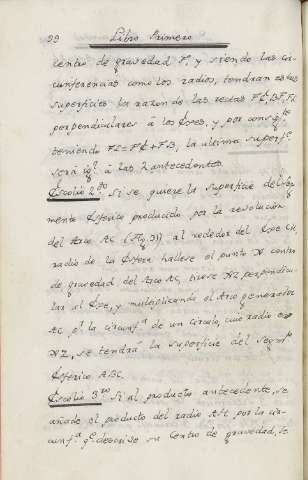 99 Libro Primero
centro de gravedad F. y siendo las cir-
cunferencias como los radios, tendran estas
superficies la razon de las rectas FC, BF, FL
perpendiculares á los Exes, y por consigte
teniendo FL=FC+FB, la ultima superfe
será igl á las 2 antecedentes.
Escolio 2do Si se quiere la superficie del seg-
mento Esferico producido por la revolucion
del Arco AC (Fig 31) al rededor del Exe
radio de la Esfera hallese el punto X centro
de gravedad del Arco AC, tirese XZ perpendicu-
lar al Exe, y multiplicando el Arco generador
AC pr la circunfa de un circulo, cuio radio es
XZ, se tendrá la superficie del segmto
Esferico ABC.
Escolio 3ro Si al producto antecedente, se
añade el producto del radio por la cir-
cunfa qe describe su Centro de gravedad, se